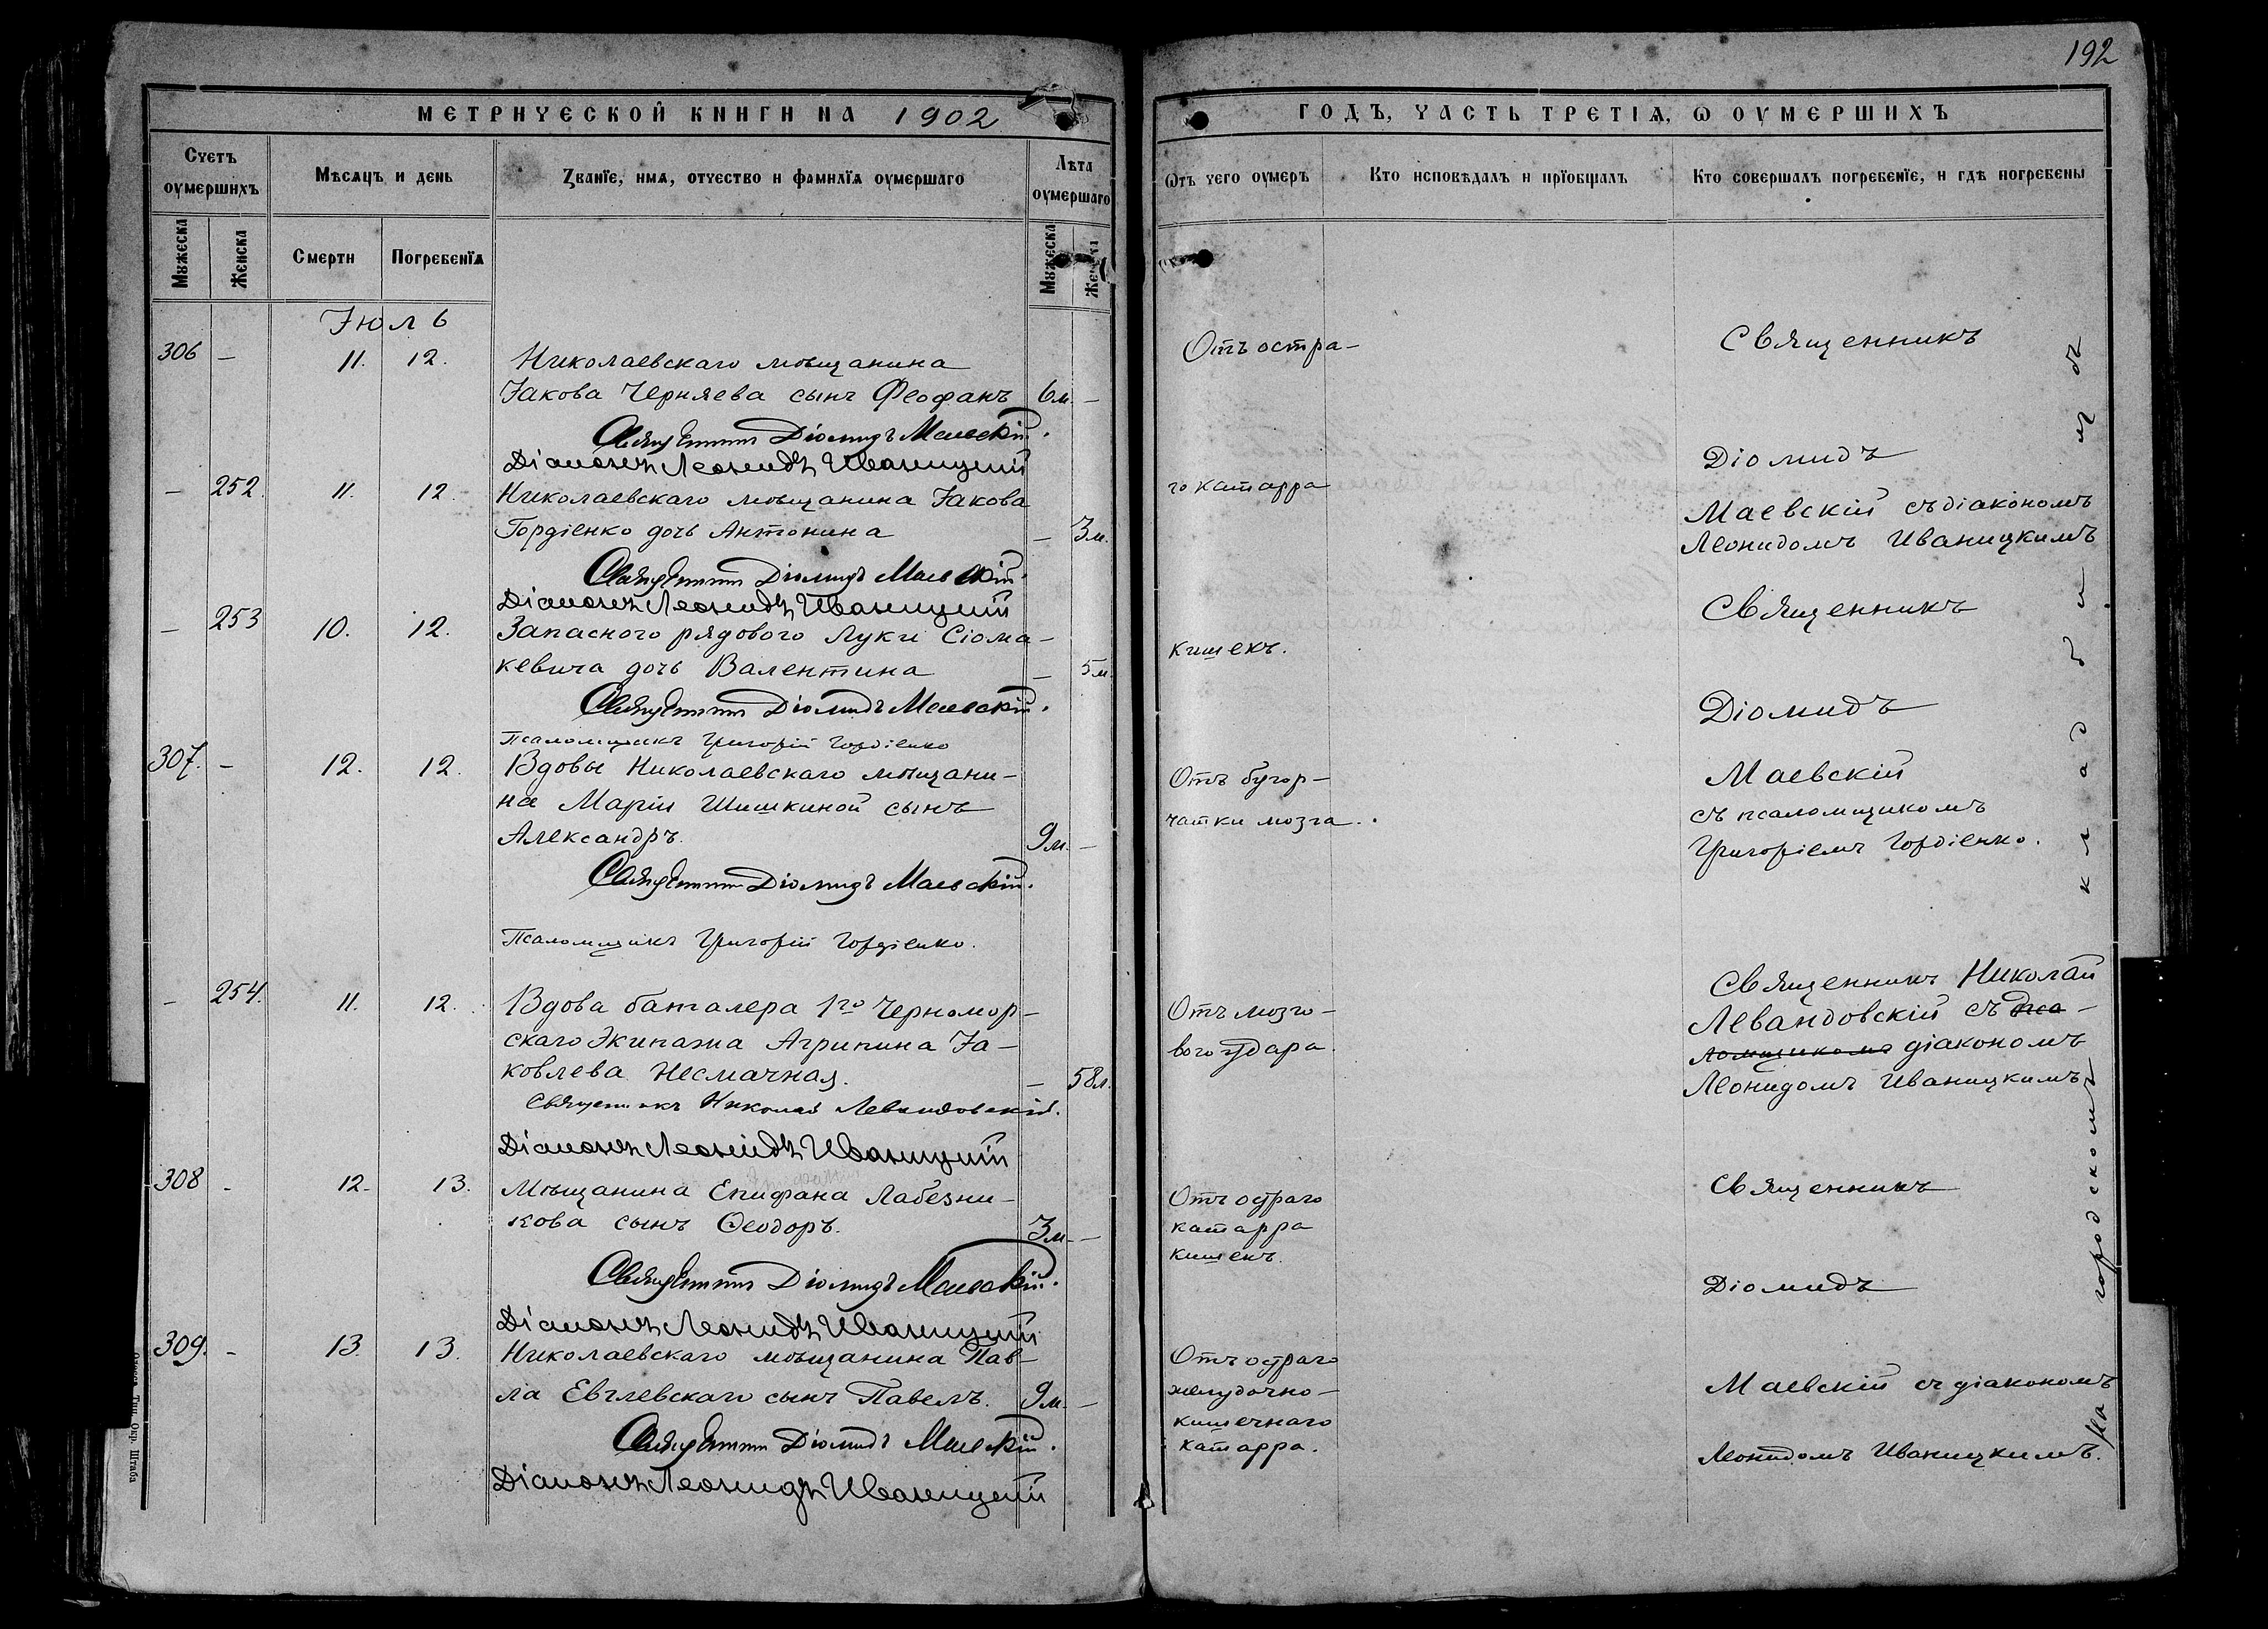 192
МЕТРИЧЕСКОЙ КНИГИ НА 1902
ГОДЪ, ЧАСТЬ ТРЕТІѦ, Ѡ ОУМЕРШИХЪ
Счетъ оумершихъ
Мѣсяцъ и день
Званїе, имѧ, отчество и фамилїѧ оумершаго
Лѣта оумершаго
Ѿтъ чего оумеръ
Кто исповѣдалъ и прїобщалъ
Кто совершалъ погребенїе, и гдѣ погребены
Мужеска
Женска
Смерти
Погребенїѧ
Мужеска
Женска
Іюль
306 — 11. 12. Николаевскаго мѣщанина
Іакова Черняева сынъ Феофанъ 6м. —
Священникъ Діомидъ Маевскій.
Діаконъ Леонидъ Иваницкій
— 252. 11. 12. Николаевскаго мѣщанина Іакова
Гордіенко дочь Антонина — 3м.
Священникъ Діомидъ Маевскій.
Діаконъ Леонидъ Иваницкій
— 253 10. 12. Запасного рядового Луки Сіома-
кевича дочь Валентина — 5м.
Священникъ Діомидъ Маевскій.
Псаломщикъ Григорій Гордіенко
307. — 12. 12. Вдовы Николаевскаго мѣщани-
на Маріи Шишкиной сынъ
Александръ. 9м. —
Священникъ Діомидъ Маевскій.
Псаломщикъ Григорій Гордіенко.
— 254. 11. 12. Вдова баталера 1го Черномор-
скаго Экипажа Агрипина Іа-
ковлева Несмачная. — 58л.
Священникъ Николай Левандовскій.
Діаконъ Леонидъ Иваницкій
308 — 12. 13. Мѣщанина Епифана Лабезни-
кова сынъ Ѳеодоръ. 3м. —
Священникъ Діомидъ Маевскій.
Діаконъ Леонидъ Иваницкій
309. — 13. 13. Николаевскаго мѣщанина Пав-
ла Евглевскаго сынъ Павелъ. 9м. —
Священникъ Діомидъ Маевскій.
Діаконъ Леонидъ Иваницкій
Одесса, Тип. Окр. Штаба
Отъ остра-
го катарра
кишекъ.
Отъ бугор-
чатки мозга.
Отъ мозго-
вого удара.
Отъ остраго
катарра
кишекъ.
Отъ остраго
желудочно-
кишечнаго
катарра.
Священникъ
Діомидъ
Маевскій съ діакономъ
Леонидомъ Иваницкимъ
Священникъ
Діомидъ
Маевскій
съ псаломщикомъ
Григоріемъ Гордіенко.
Священникъ Николай
Левандовскій съ пса-
ломщикомъ діакономъ
Леонидомъ Иваницкимъ
Священникъ
Діомидъ
Маевскій съ діакономъ
Леонидомъ Иваницкимъ.
На городскомъ кладбищѣ